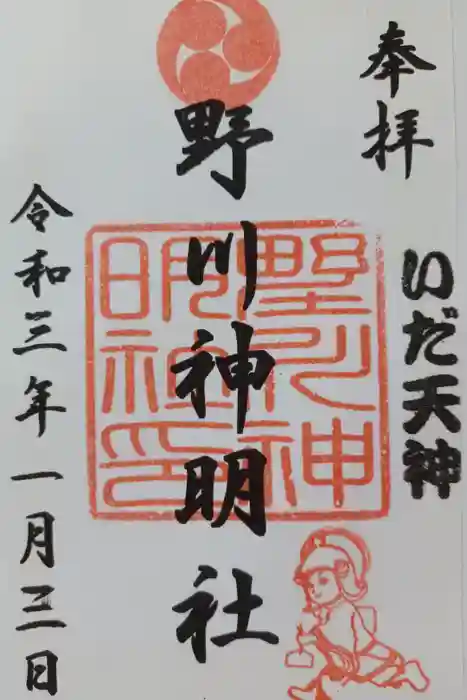 奉拝
いだ天神
野川神明社
野川神明社印
令和三年一月三日